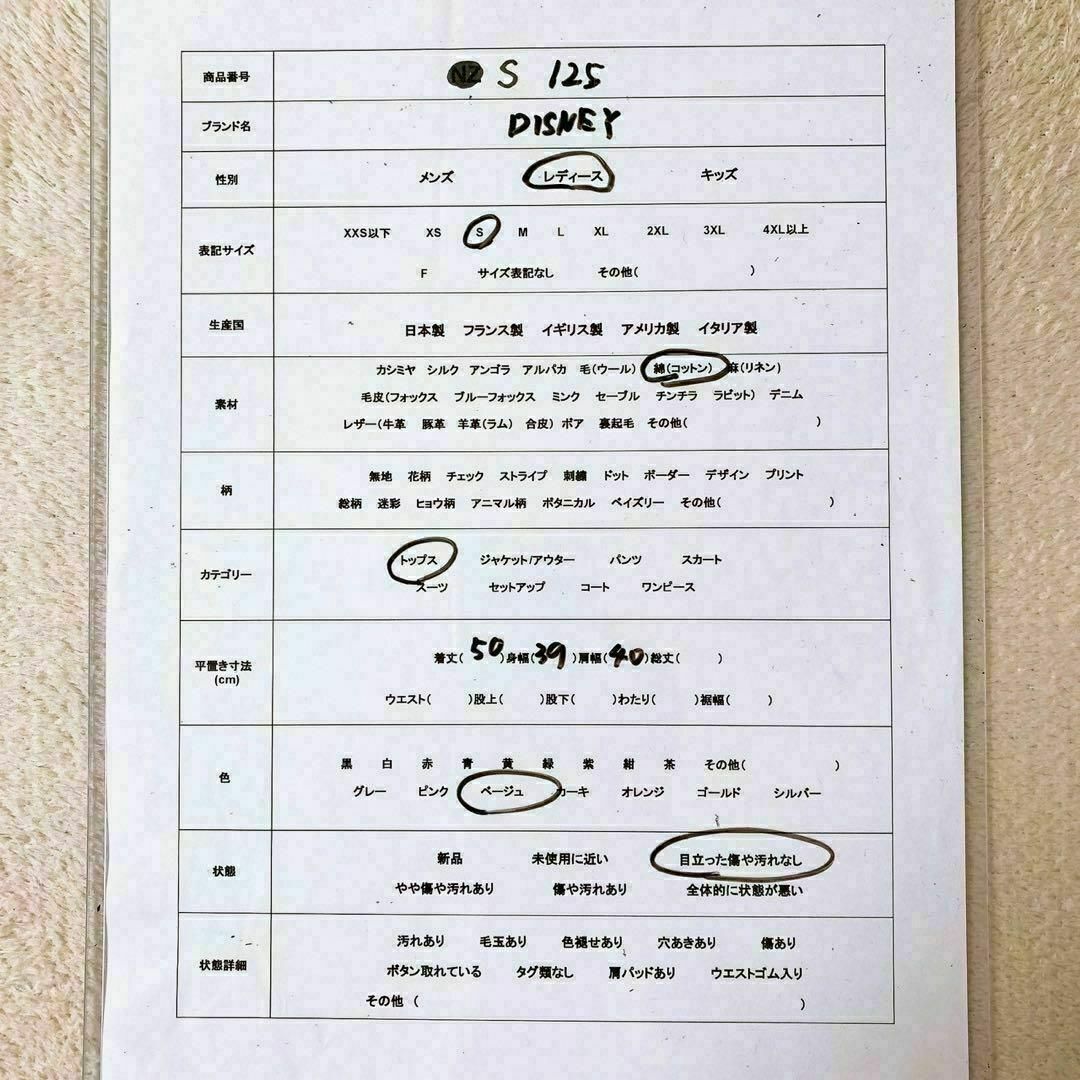 商品番号 NZ S 125
ブランド名 DISNEY
性別 メンズ レディース キッズ
表記サイズ XXS以下 XS S M L XL 2XL 3XL 4XL以上
F サイズ表記なし その他( )
生産国 日本製 フランス製 イギリス製 アメリカ製 イタリア製
素材 カシミヤ シルク アンゴラ アルパカ 毛(ウール) 綿(コットン) 麻(リネン)
毛皮(フォックス ブルーフォックス ミンク セーブル チンチラ ラビット) デニム
レザー(牛革 豚革 羊革(ラム) 合皮) ボア 裏起毛 その他( )
柄 無地 花柄 チェック ストライプ 刺繍 ドット ボーダー デザイン プリント
総柄 迷彩 ヒョウ柄 アニマル柄 ボタニカル ペイズリー その他( )
カテゴリー トップス ジャケット/アウター パンツ スカート
スーツ セットアップ コート ワンピース
平置き寸法 (cm) 着丈( 50 )身幅( 39 )肩幅( 40 )総丈( )
ウエスト( )股上( )股下( )わたり( )裾幅( )
色 黒 白 赤 青 黄 緑 紫 紺 茶 その他( )
グレー ピンク ベージュ カーキ オレンジ ゴールド シルバー
状態 新品 未使用に近い 目立った傷や汚れなし
やや傷や汚れあり 傷や汚れあり 全体的に状態が悪い
状態詳細 汚れあり 毛玉あり 色褪せあり 穴あきあり 傷あり
ボタン取れている タグ類なし 肩パッドあり ウエストゴム入り
その他 ( )